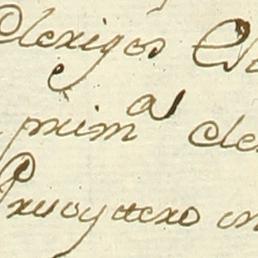 Clerigos
prim^a cle
Presvytero in